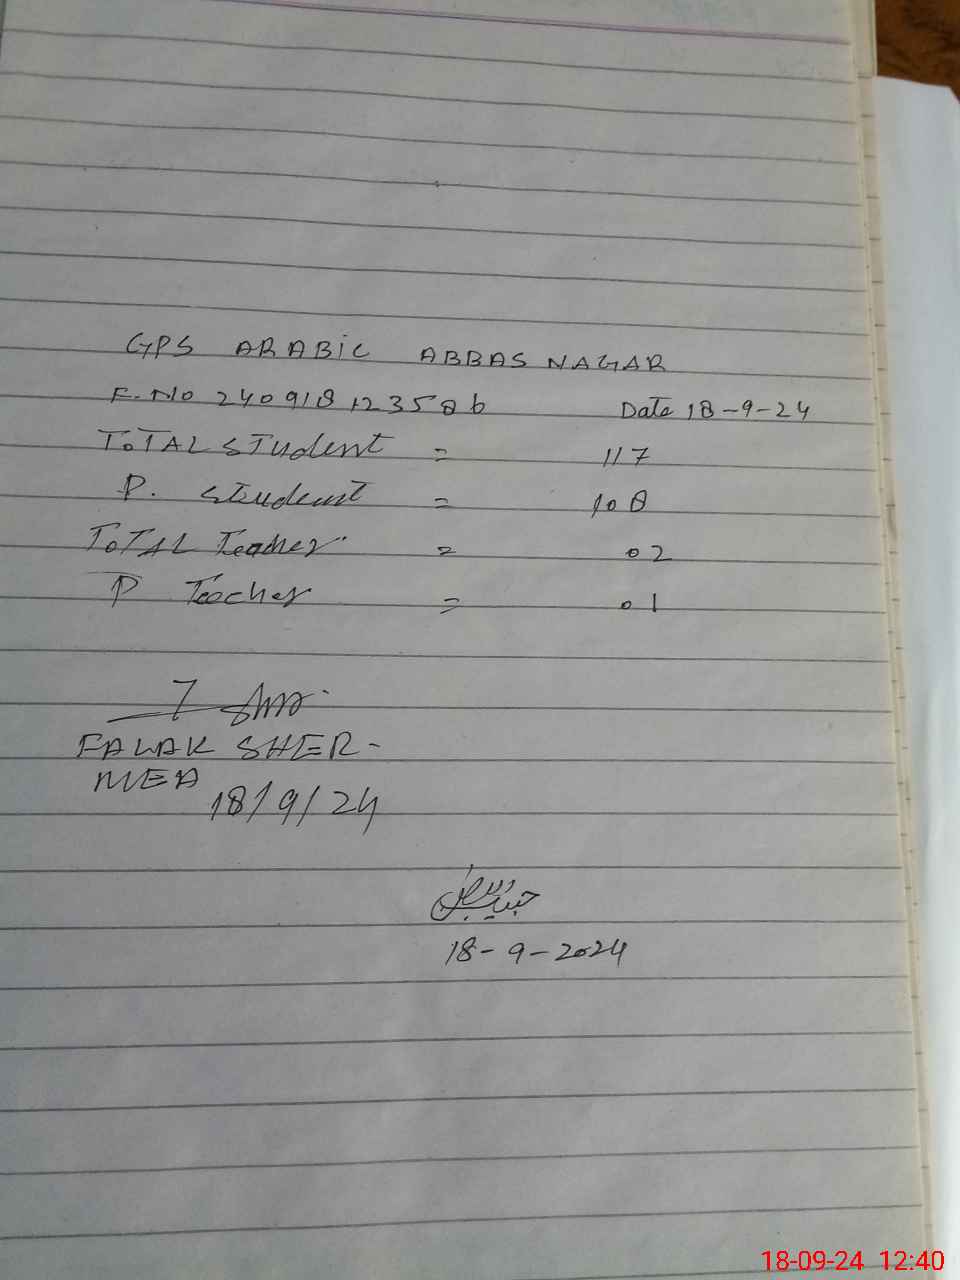 GPS ARABiC ABBAS NAGAR
F.No 240918123586 Date 18-9-24
ToTAL STudent = 117
P. Student = 108
ToTAL Teacher = 02
P Teacher = 01
FALAK SHER-
MEA
18/9/24
18-9-2024
18-09-24 12:40